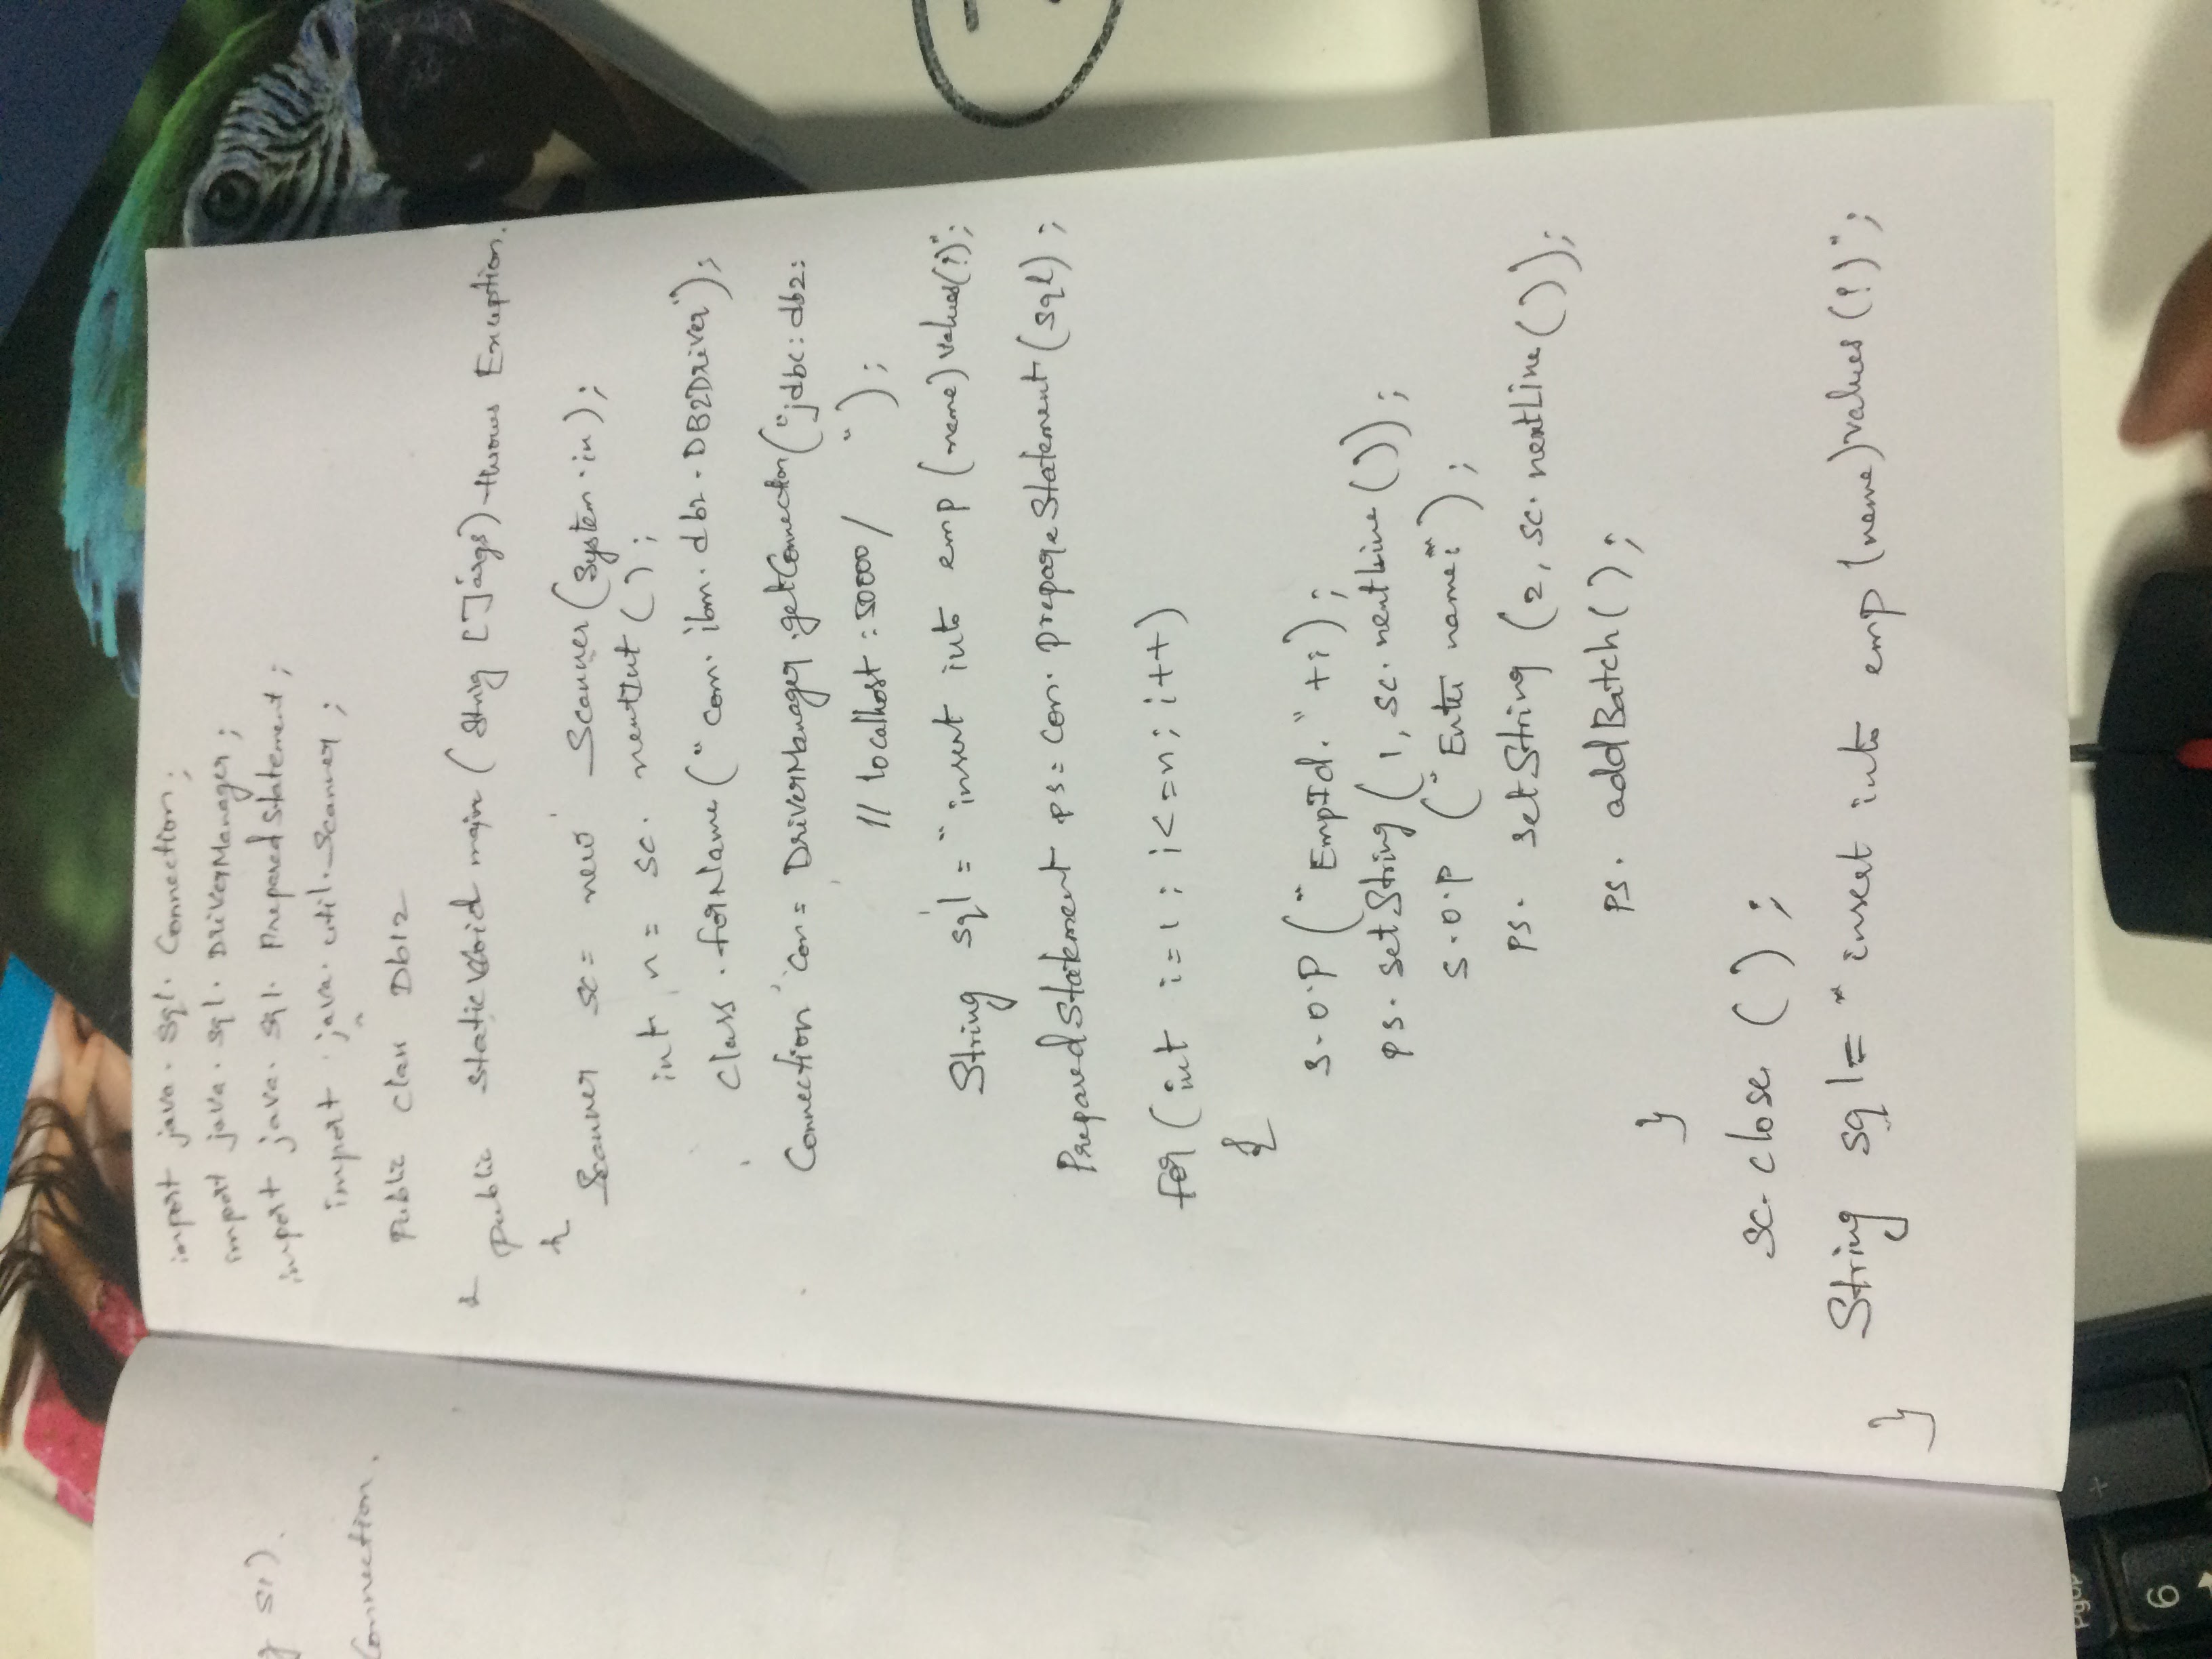 g s1).
Connection.
import java.sql.Connection;
import java.sql.DriverManager;
import java.sql.PreparedStatement;
import java.util.Scanner;
Public class Db12
{
public static void main (String []args) throws Exception.
{
Scanner sc = new Scanner(System.in);
int n = sc. nextInt ();
Class.forName("com.ibm.db2.DB2Driver");
Connection con = DriverManager.getConnection("jdbc:db2:
// localhost:50000/ ");
String sql = "insert into emp (name) values(?)";
PreparedStatement ps = con. prepareStatement (sql);
for (int i=1; i<=n; i++)
{
S.O.P ("EmpId. " +i);
ps. setString (1, sc.nextLine());
S.O.P ("Enter name:");
ps. setString (2, sc. nextLine());
ps. addBatch();
}
sc. close ();
String sql = "insert into emp (name)values (?)";
}
PgUp
6